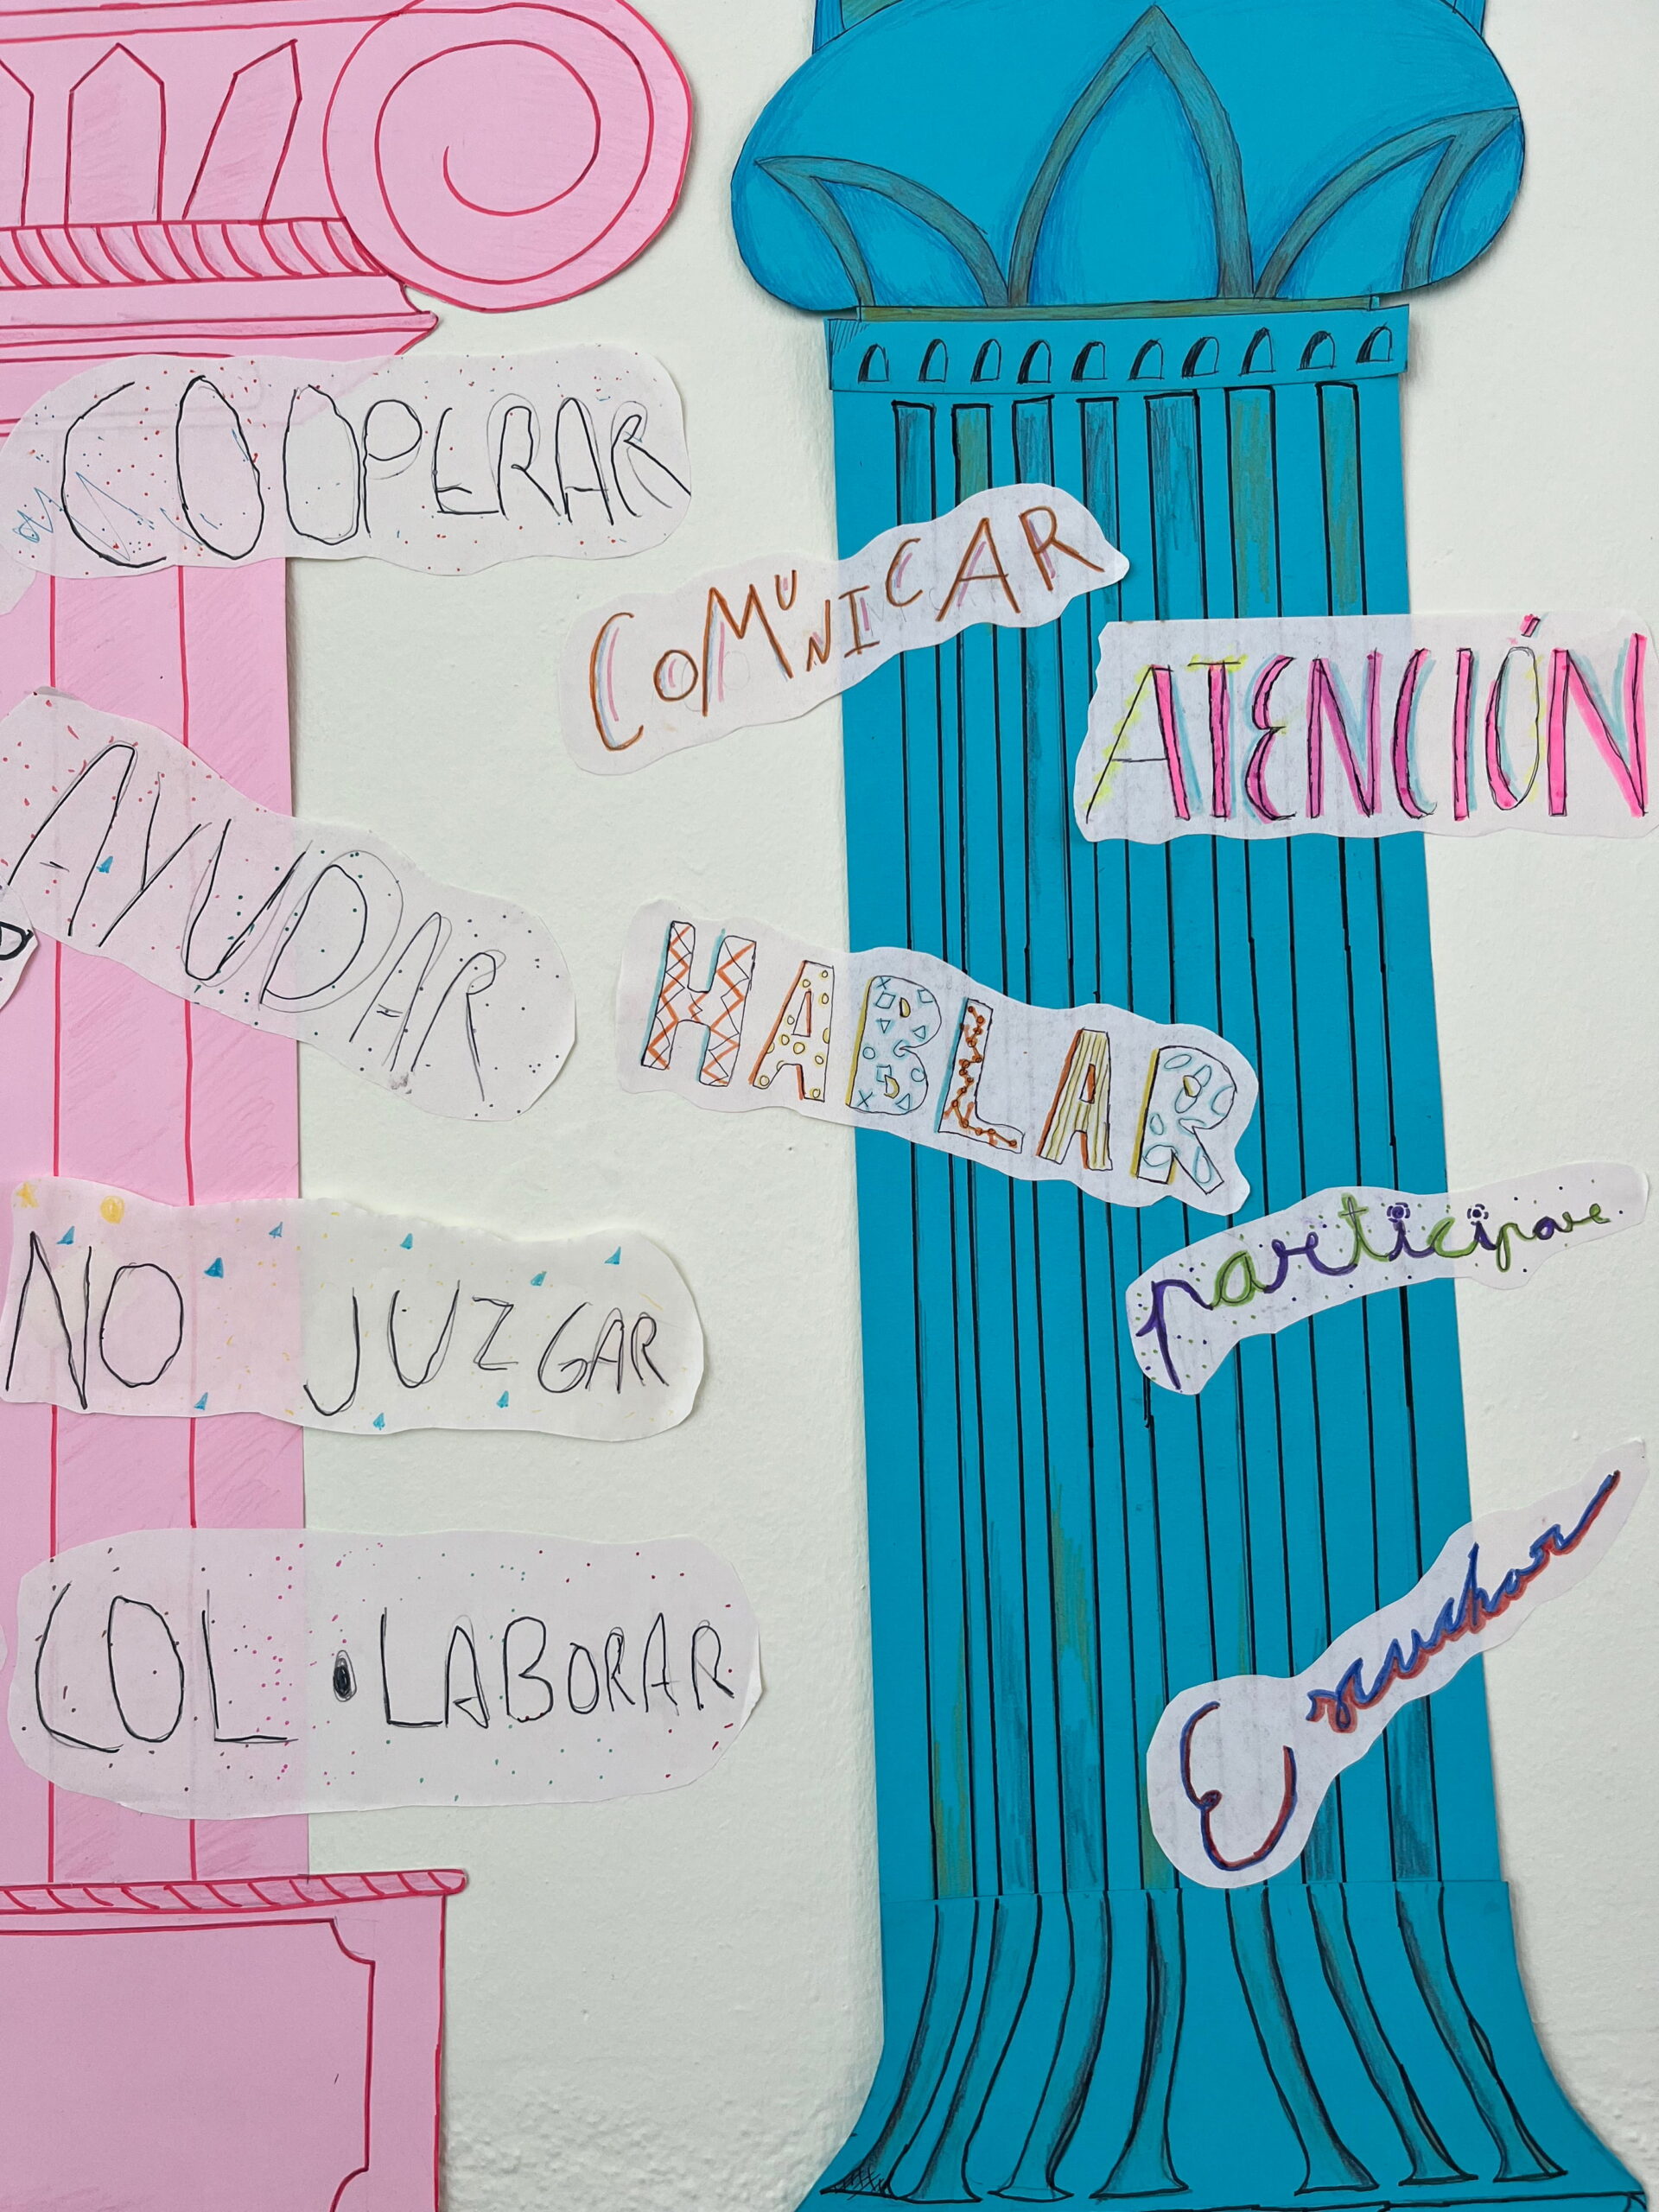 COOPERAR
COMUNICAR
ATENCIÓN
AYUDAR
HABLAR
participar
NO JUZGAR
Escuchar
COL·LABORAR